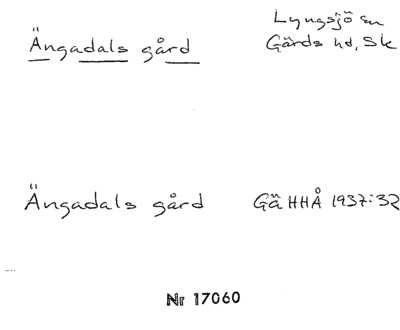 Ängadals gård
Lyngsjö sn
Gärds hd, Sk
Ängadals gård GäHHÅ 1937:32
Nr 17060